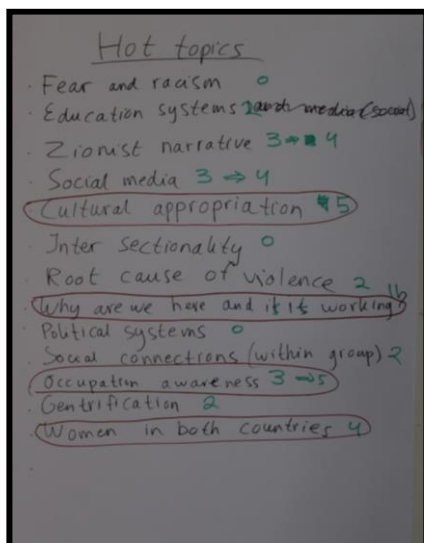 Hot topics
· Fear and racism 0
· Education systems 2 and media (social)
· Zionist narrative 3 → 4
· Social media 3 ⇒ 4
Cultural appropriation 5
· Inter Sectionality 0
Root cause of violence 2
Why are we here and is it working? 11
· Political systems 0
· Social connections (within group) 2
Occupation awareness 3 → 5
· Gentrification 2
Women in both countries 4